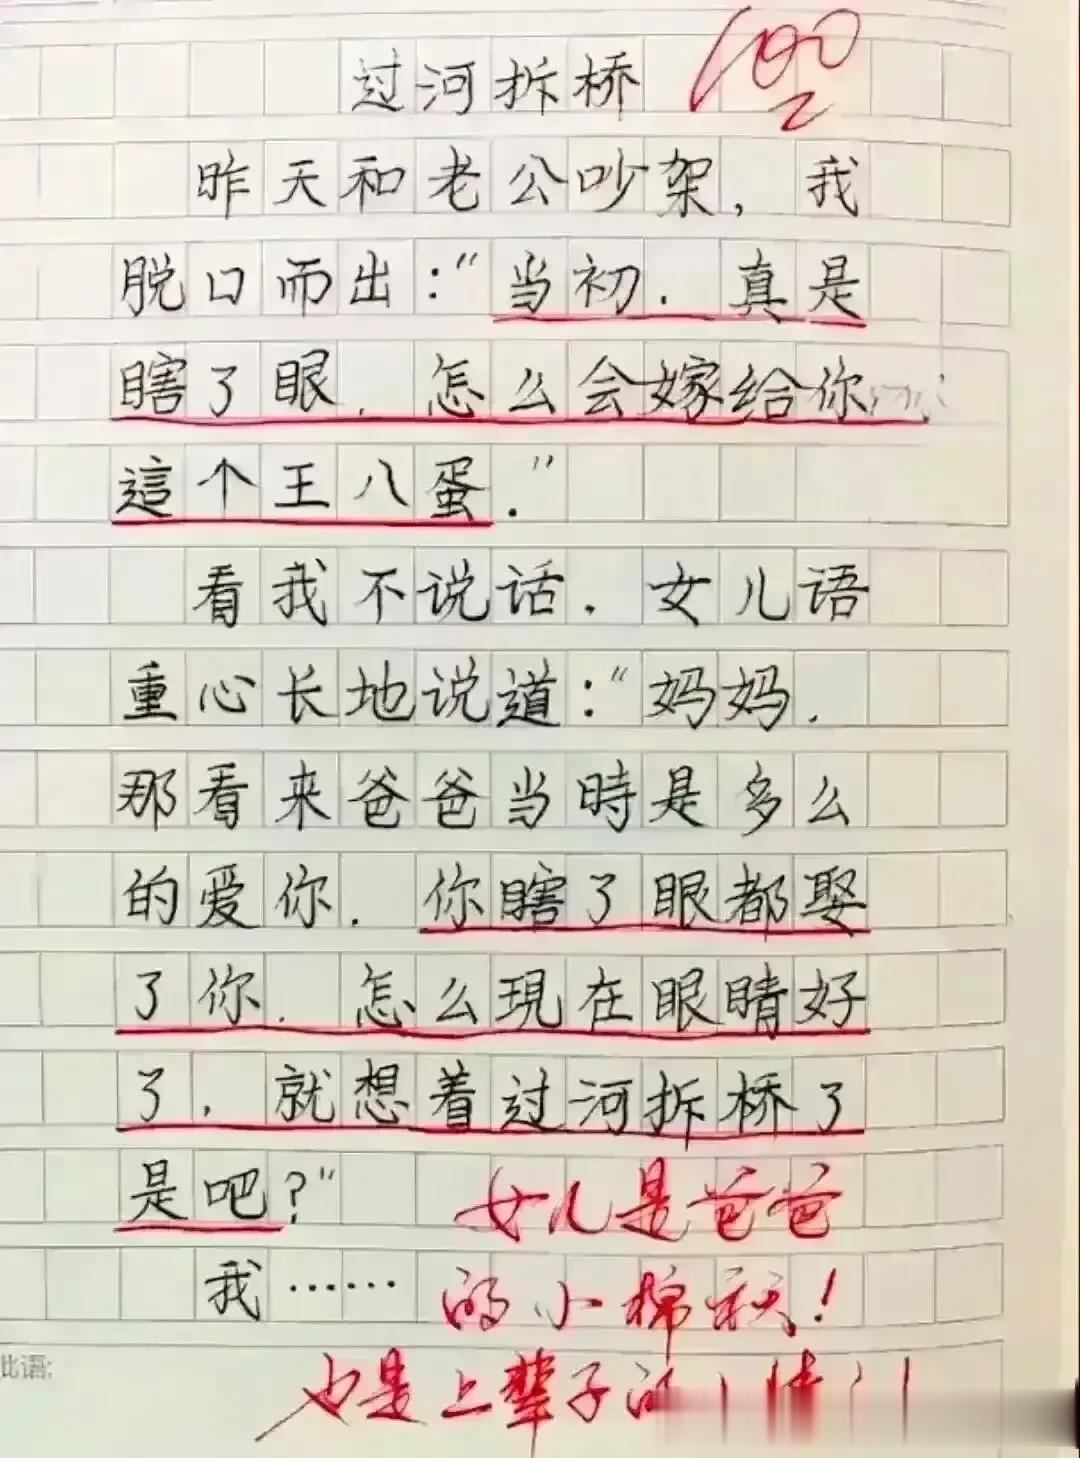 过河拆桥
100
昨天和老公吵架，我
脱口而出：“当初．真是
瞎了眼．怎么会嫁给你
這个王八蛋．”
看我不说话．女儿语
重心长地说道：“妈妈．
那看来爸爸当時是多么
的爱你．你瞎了眼都娶
了你．怎么現在眼睛好
了，就想着过河拆桥了
是吧？”
女儿是爸爸
我……
的小棉袄！
批语:
也是上辈子的